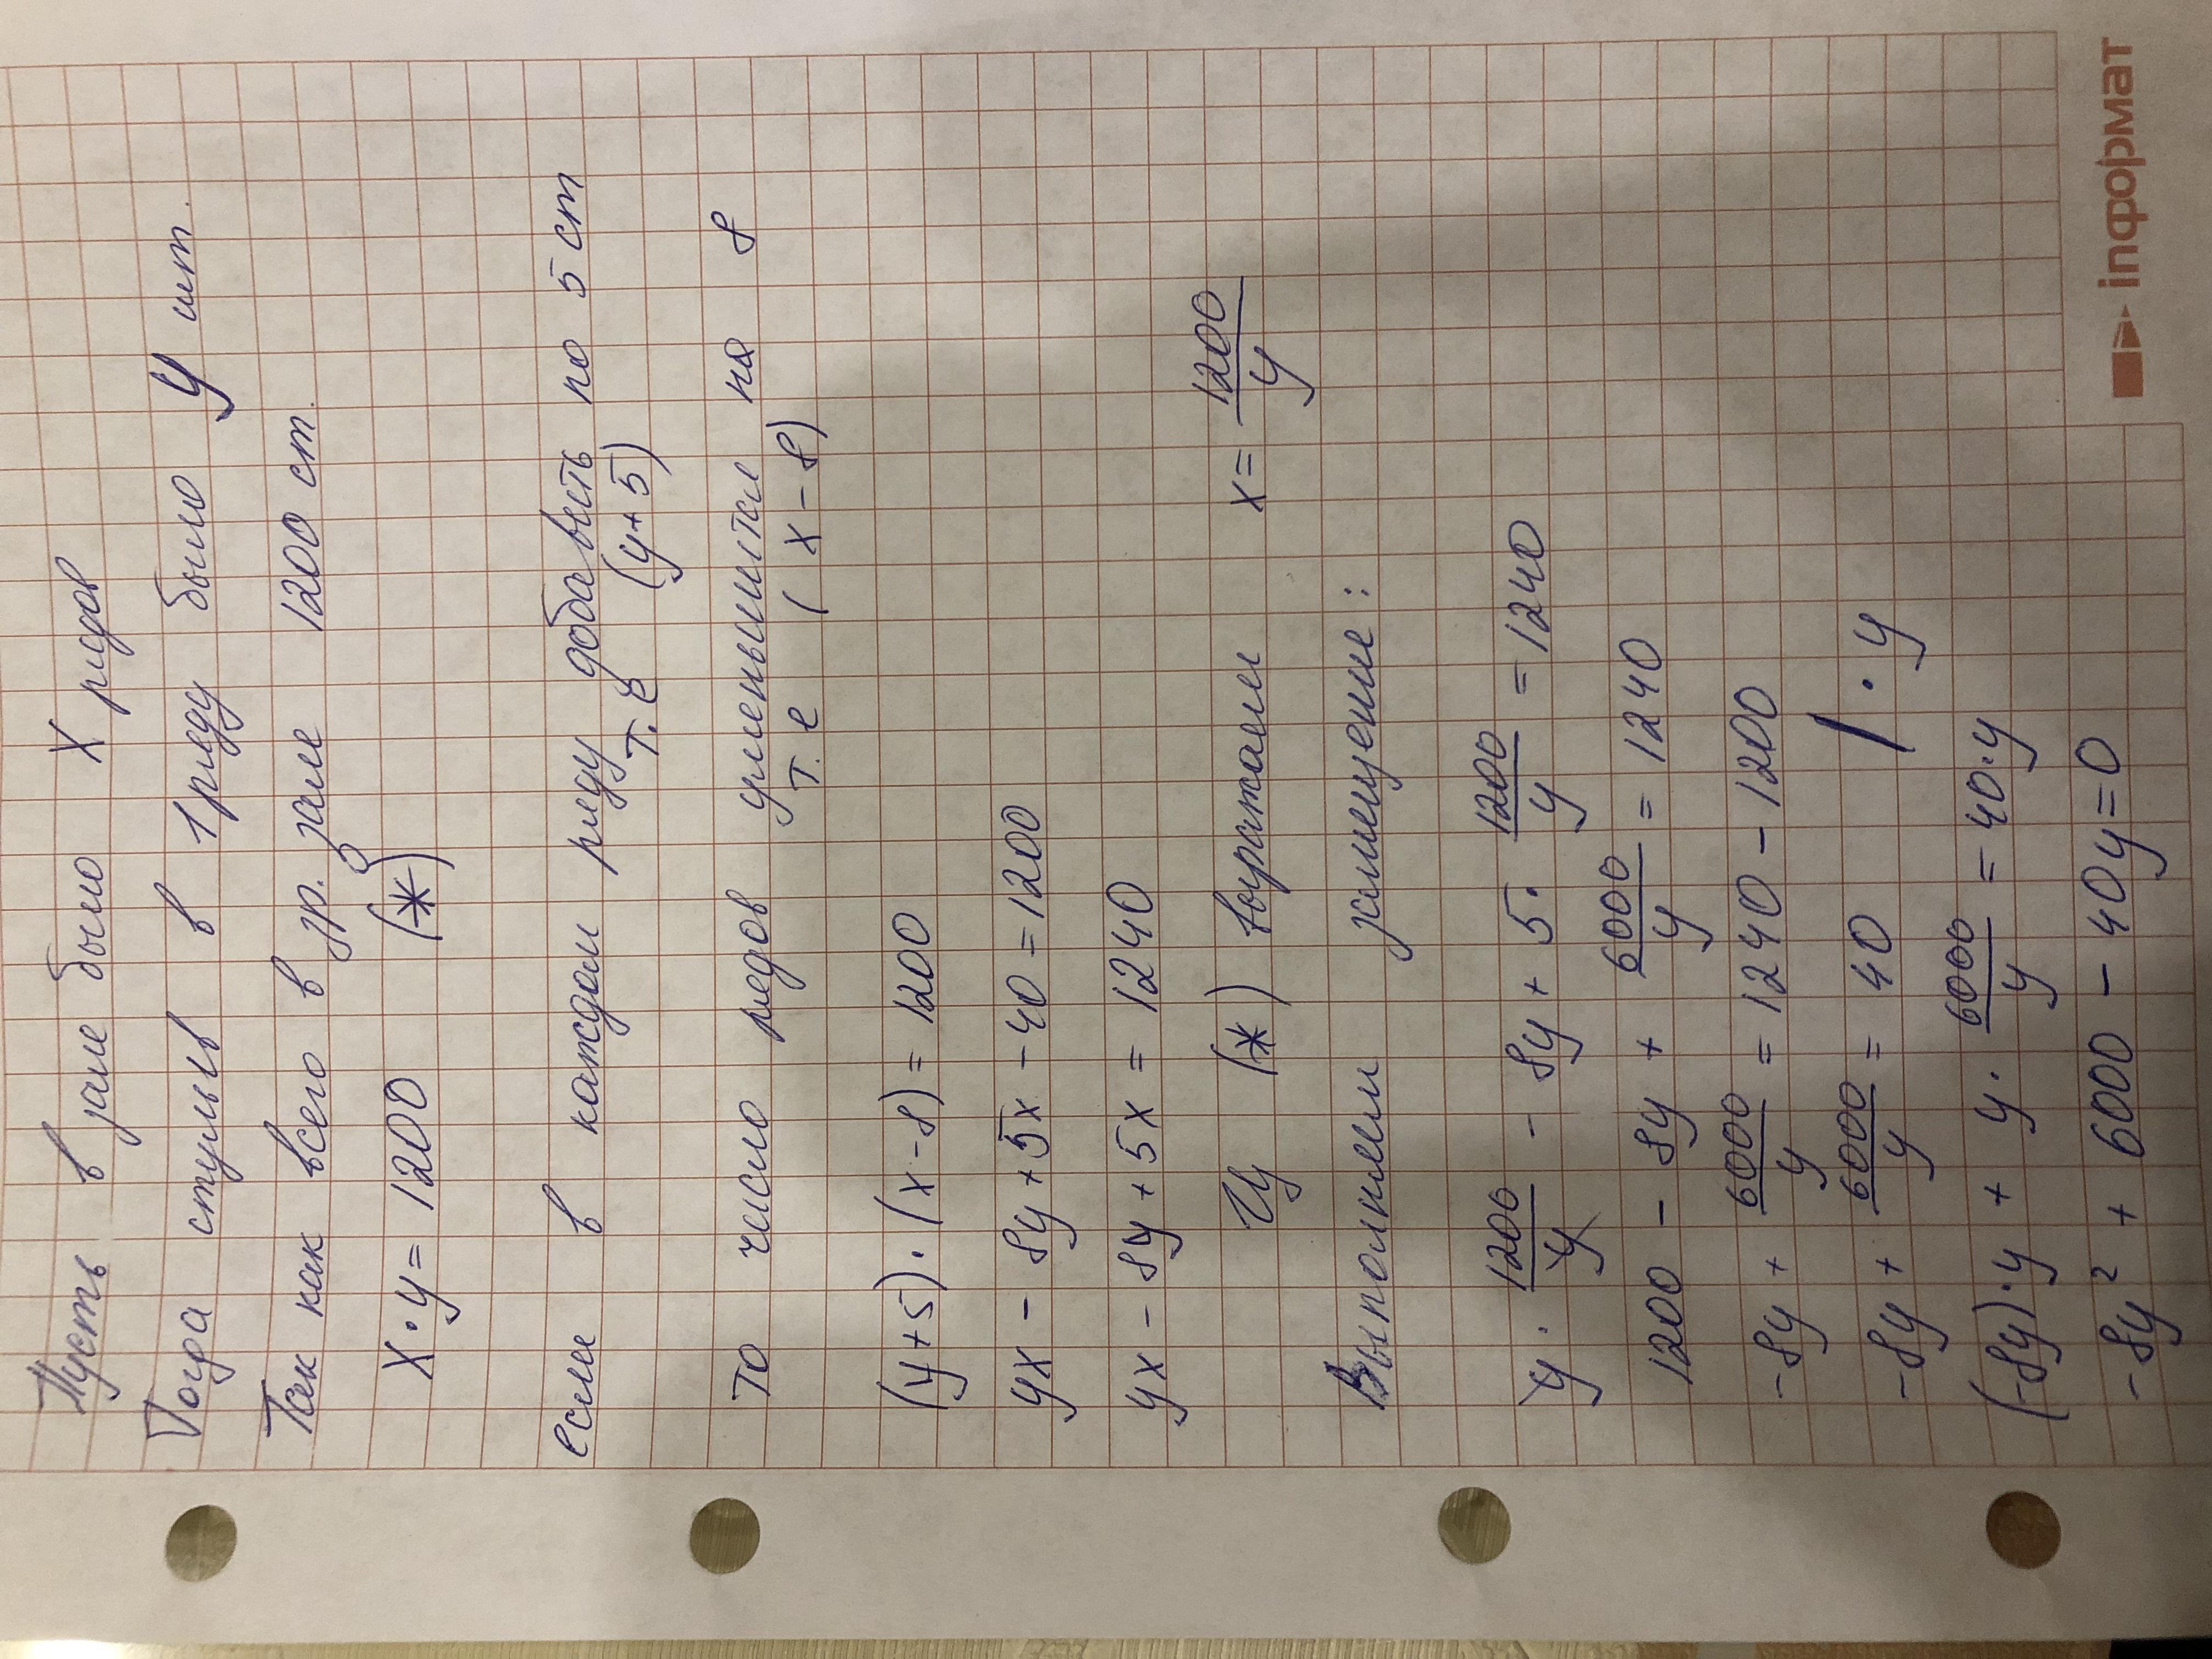 Пусть в зале было X рядов
Тогда стульев в 1 ряду было y шт.
Так как всего в зр. зале 1200 ст.
X · y = 1200 (*)
если в каждом ряду добавить по 5 ст
т. е (y + 5)
то число рядов уменьшится на 8
т. е (x - 8)
(y + 5) · (x - 8) = 1200
yx - 8y + 5x - 40 = 1200
yx - 8y + 5x = 1240
Из (*) выражаем x = 1200/y
Выполняем замещение:
y · 1200/y - 8y + 5 · 1200/y = 1240
1200 - 8y + 6000/y = 1240
-8y + 6000/y = 1240 - 1200
-8y + 6000/y = 40 / · y
(-8y) · y + y · 6000/y = 40 · y
-8y² + 6000 - 40y = 0
inформат